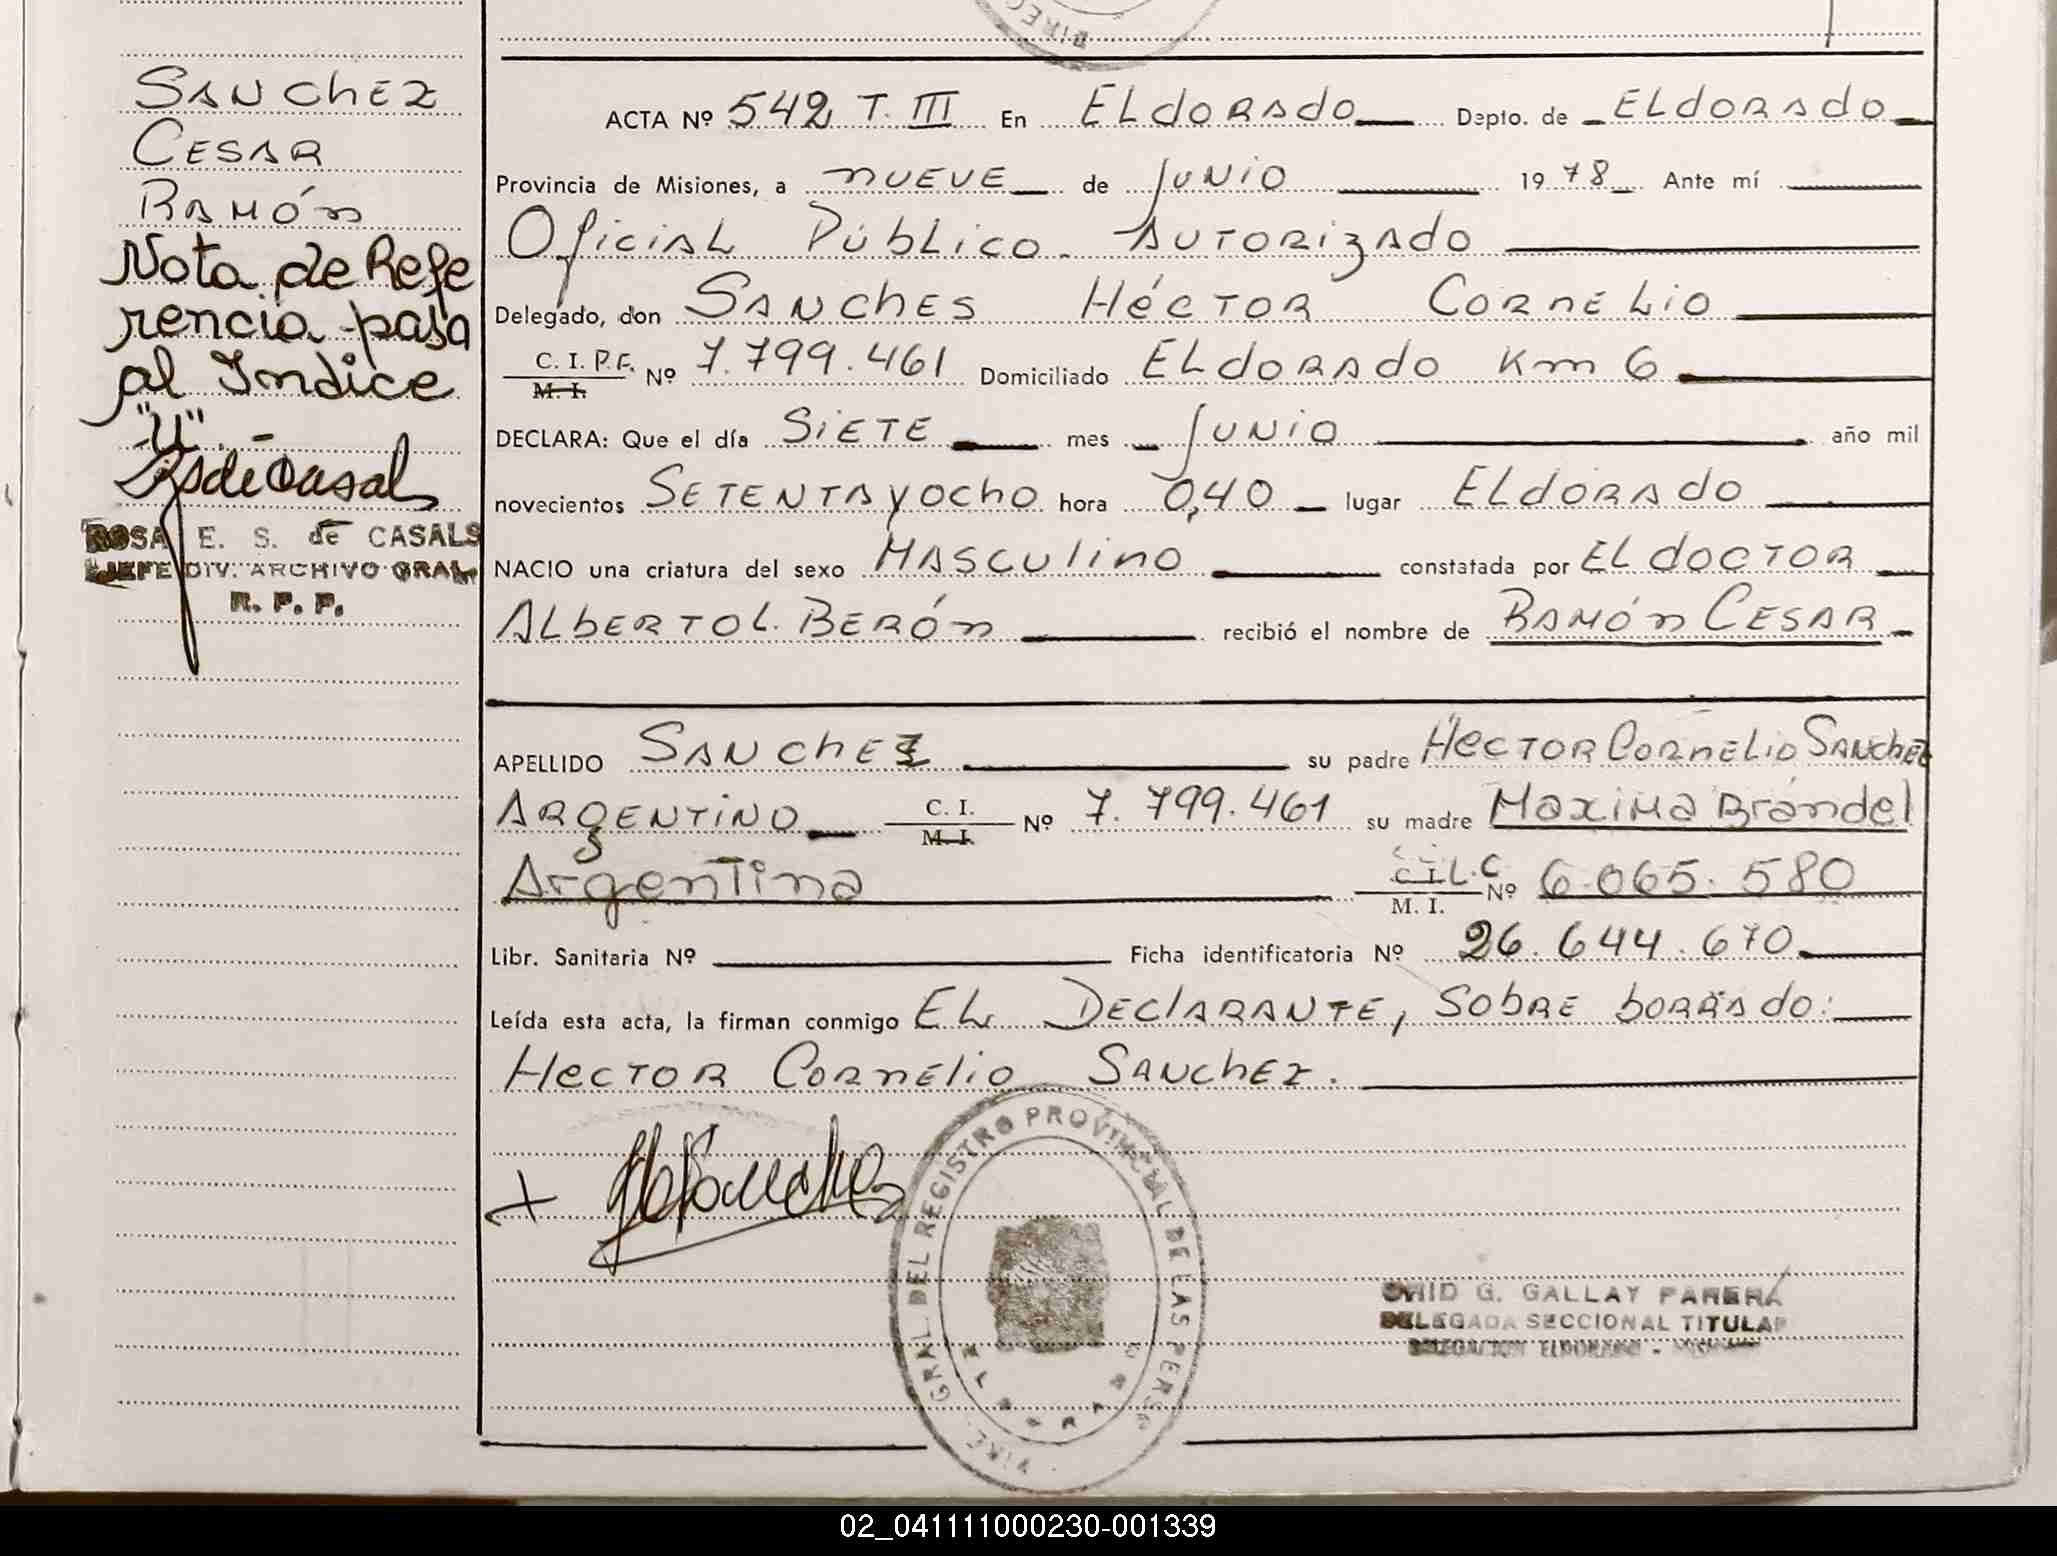 SANCHEZ
CESAR
RAMÓN
Nota de Refe
rencia pasa
al Indice
"U".-
ROSA E. S. de CASALS
JEFE DIV. ARCHIVO GRAL.
R. P. P.
ACTA Nº 542 T. III En ELdORADO Depto. de ELdORADO
Provincia de Misiones, a nUEVE de JUNIO 1978 Ante mí
Oficial Público Autorizado
Delegado, don SANChES HéCTOR CORnELio
C. I. P.F. M. I. Nº 7.799.461 Domiciliado ELdORADO Km 6
DECLARA: Que el día SiETE mes JUNIO año mil
novecientos SETENTA y OCHO hora 0,40 lugar ELdORADO
NACIO una criatura del sexo MASCUlino constatada por EL dOCTOR
ALbERTO L. BERÓn recibió el nombre de RAMÓn CESAR
APELLIDO SANChEZ su padre HECTOR CORnELiO SANChEZ
ARGENTINO C. I. M. I. Nº 7.799.461 su madre MaxiMa Brandel
Argentina C I L.C M. I. Nº 6.065.580
Libr. Sanitaria Nº Ficha identificatoria Nº 26.644.670
Leída esta acta, la firman conmigo EL DEClARANTE, SObRE bORRAdo:
HECTOR CORnElio SANChEZ.
DIRE. GRAL. DEL REGISTRO PROVINCIAL DE LAS PERS
G. GALLAY PARERA
DELEGADA SECCIONAL TITULAR
DELEGACION ELDORADO - MISIONES
02_041111000230-001339